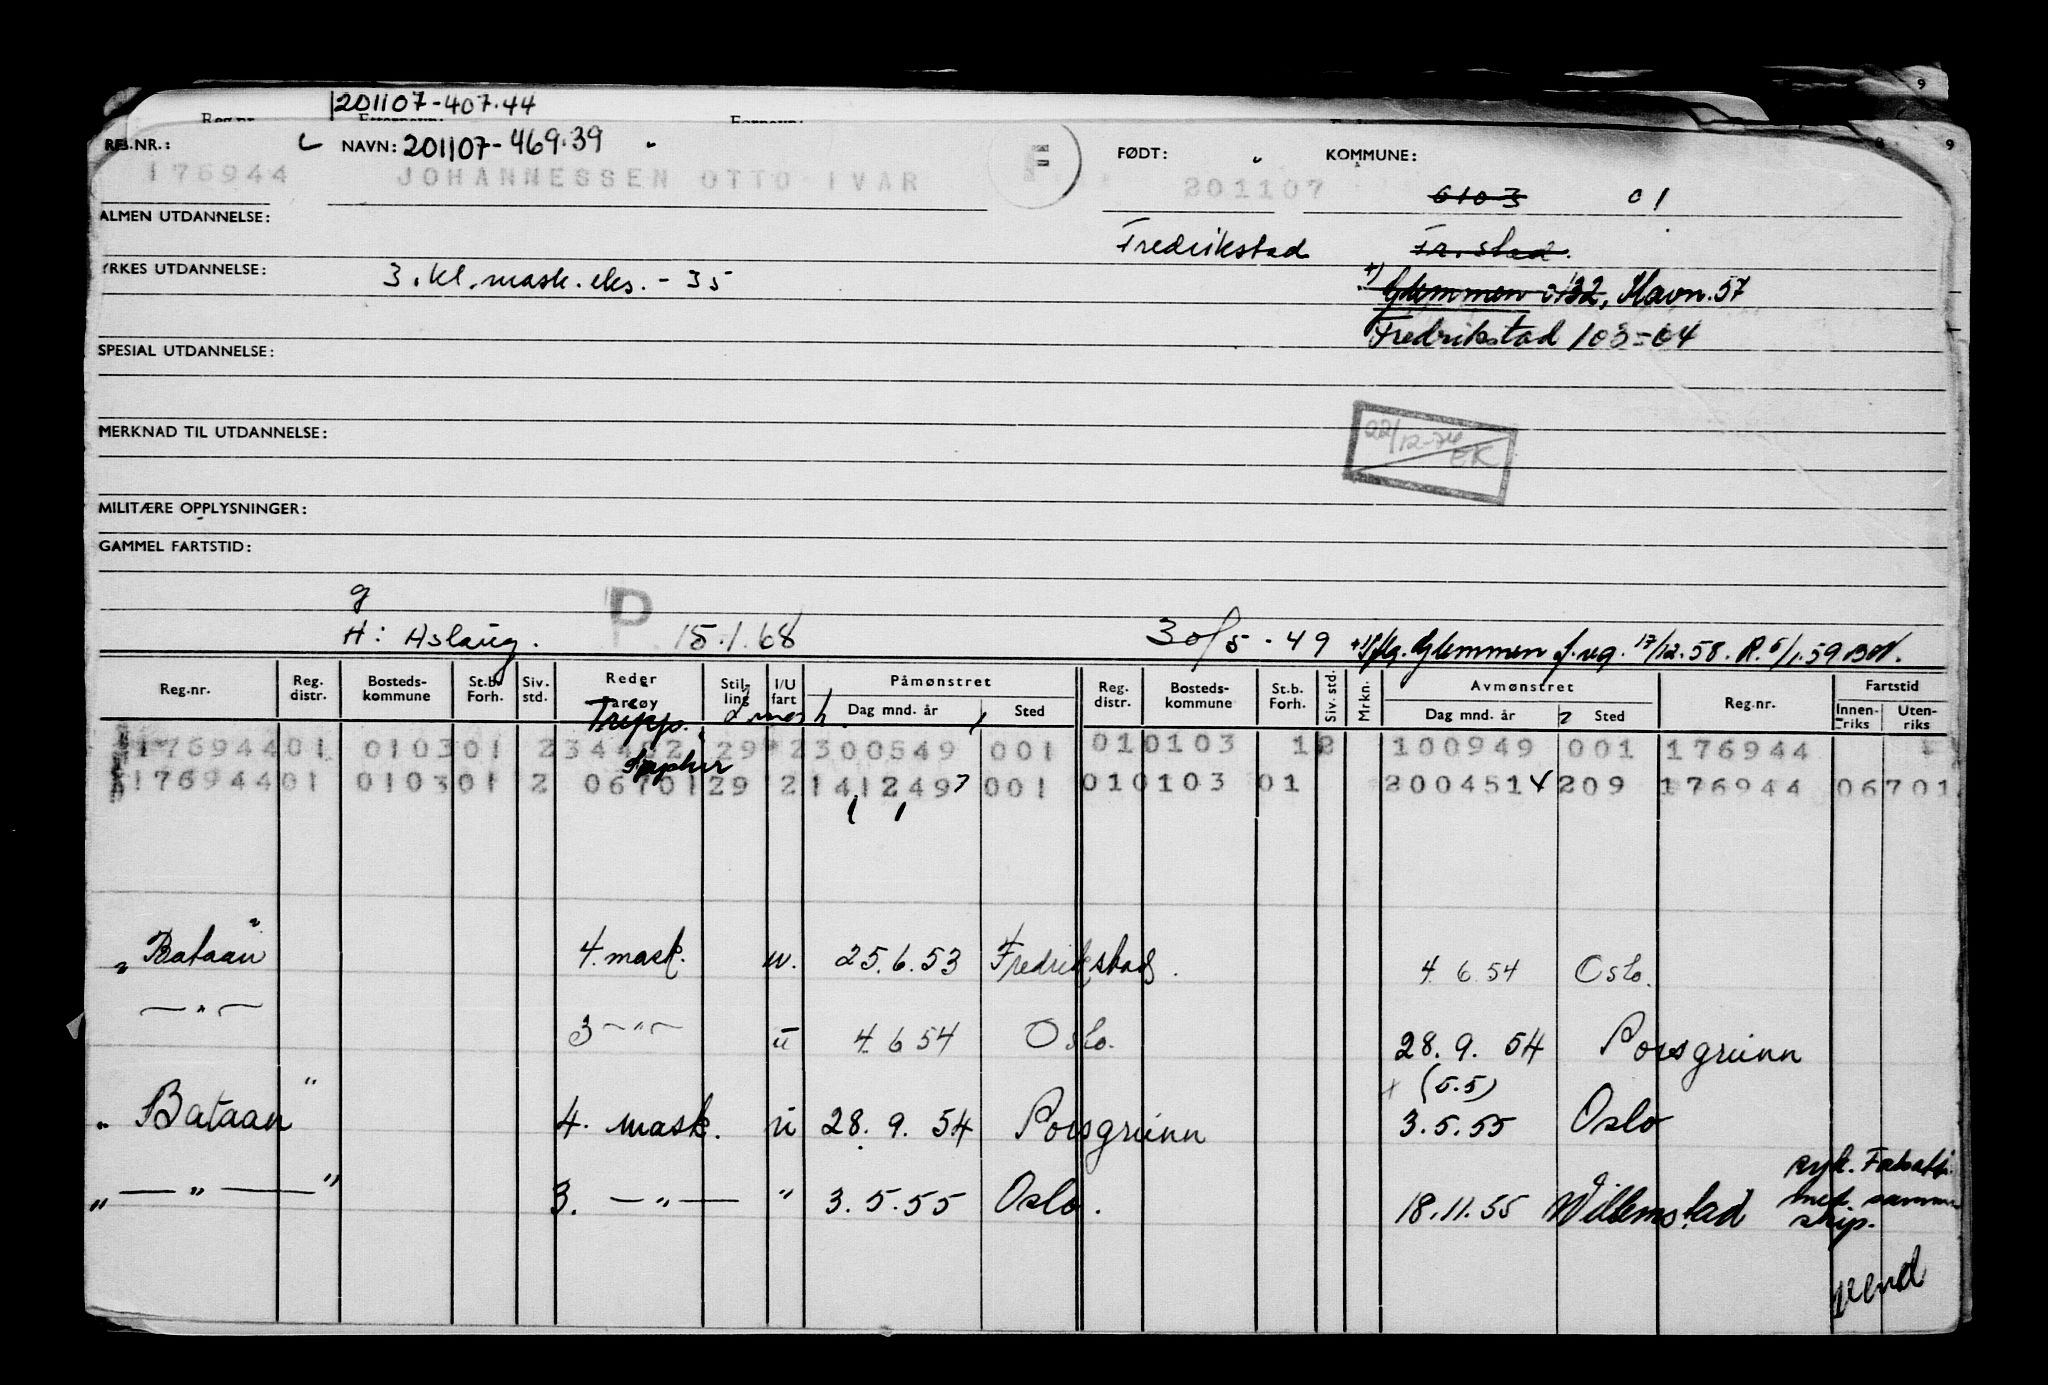 201107-407.44
REG.NR.: NAVN: 201107-469.39 FØDT: KOMMUNE:
176944 JOHANNESSEN OTTO IVAR F 201107 0103 01
ALMEN UTDANNELSE:
Fredrikstad Fr.stad.
YRKES UTDANNELSE: 3. kl. mask. eks. - 35
+) Glemmen 0132, Havn. 57
Fredrikstad 103-04
SPESIAL UTDANNELSE:
22/12-76 EK
MERKNAD TIL UTDANNELSE:
MILITÆRE OPPLYSNINGER:
GAMMEL FARTSTID:
g
H: Aslaug. P 15.1.68 30/5-49 +) flg. Glemmen f.reg. 17/12.58. R. 5/1.59
Reg.nr. Reg. distr. Bosteds-kommune St.b. Forh. Siv. std. Reder Fartøy Stilling I/U fart Påmønstret Dag mnd. år Sted Reg. distr. Bosteds-kommune St.b. Forh. Siv. std. Mrkn. Avmønstret Dag mnd. år Sted Reg.nr. Fartstid Innen-riks Uten-riks
Tripp. 2 mask.
176944 01 0103 01 2 29 2 300549 001 01 0103 1 2 100949 001 176944
Saphir
176944 01 0103 01 2 06701 29 2 141249 7 001 01 0103 01 200451 4 209 176944 06701
"Bataan" 4. mask. u. 25.6.53 Fredrikstad. 4.6.54 Oslo.
— " — 3 — " — u 4.6.54 Oslo. 28.9.54 Porsgrunn
x (5.5)
"Bataan" 4. mask. u 28.9.54 Porsgrunn 3.5.55 Oslo
" — " — " 3. — " — " 3.5.55 Oslo. 18.11.55 Willemstad syk.
med samme
skip.
vend